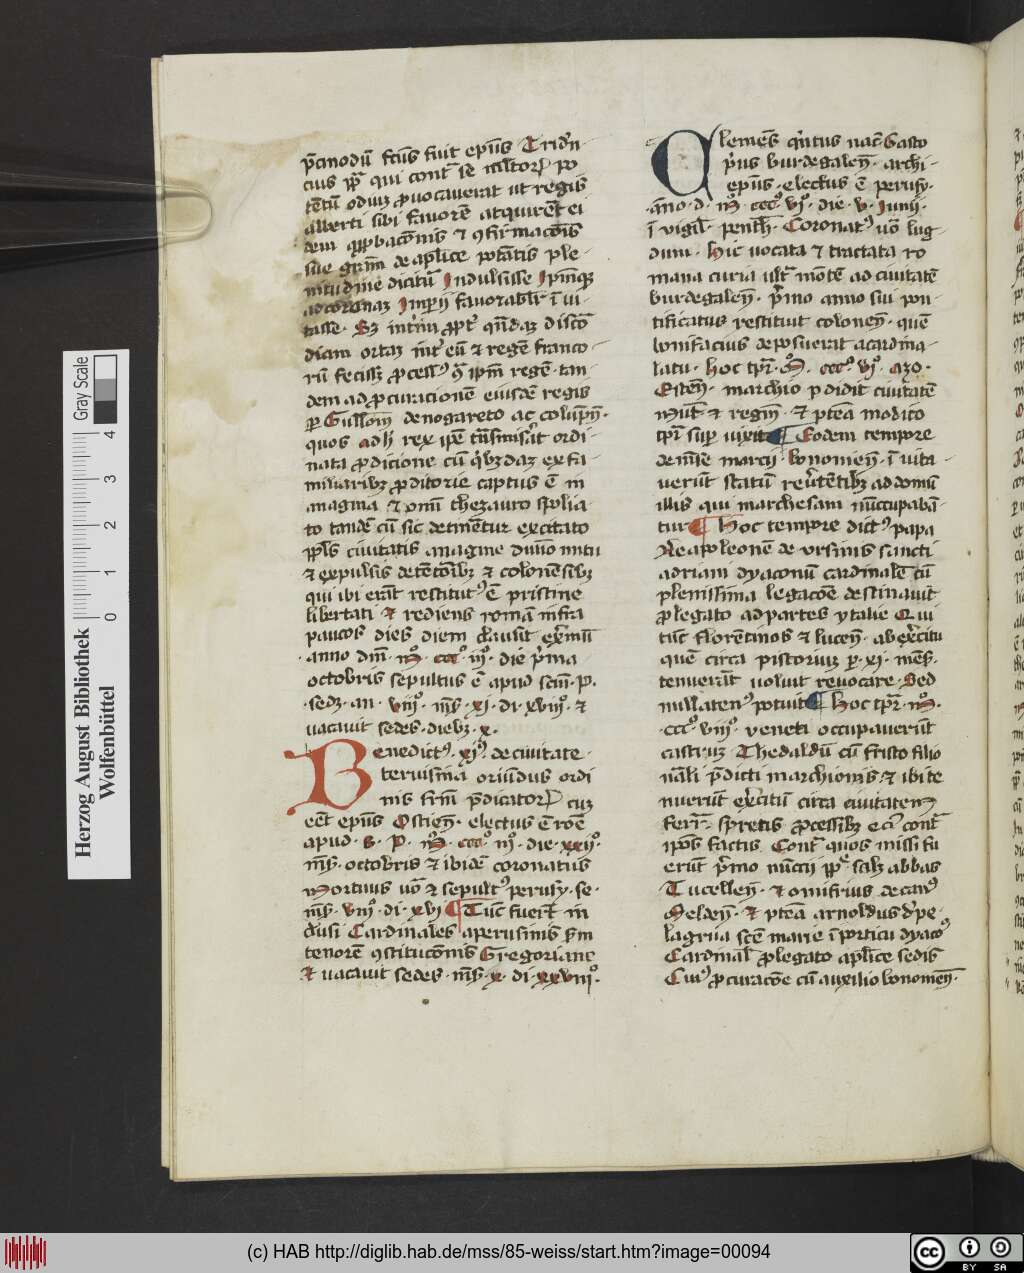 p̄cinodū fcūs fuit ep̄us Tridn̄
cius ꝓp̄ qui cont̄ se militoꝝ po
tētū oduꝫ ꝓuocauerat ut regis
alberti sibi fauorē atquirēt ei
dem app̄bacōnis ⁊ ꝯfirmacōnis
sue grām de aplīce potātis ple
nitudine dicatū Indulsisse ip̄mqꝫ
ad coronaꝫ Imperij fauorabilr̄ ī ui
tasse. Sꝫ int̄im ꝓpt̄ qn̄daꝫ discō
diam ortaꝫ int̄ eū ⁊ regē franco
rū fecisset ꝓcess⁹ ꝯ̄ ip̄m regē tan
dem ad ꝓcuracionē eiusdē regis
ꝑ Guillm̄ de nogareto ac colūpn̄.
quos adh̄ rex ip̄e tn̄smisāt ordi
nata ꝓdicione cū qͥbꝫdaꝫ ex fa
miliaribꝫ ꝓditorie captus ē in
anagnia ⁊ omī thezauro spolia
to tandē cū sic detinēetur excitato
pp̄lo ciuitatis anagnie diuīo nutu
⁊ expulsis detētōibꝫ ⁊ colonēsibꝫ
qui ibi erāt restitut⁹ ē pristine
libertati ⁊ rediens romā infra
paucos dies diem clausit ext̄mū
anno dn̄i. m̊. ccc̊. iij̊. die p̄ma
octobris sepultus ē apud scm̄. p.
sedꝫ. an. viij̊. mēs. xi. di. xviij̊. ⁊
uacauit sedes. diebꝫ. x.
Benedict⁹. xi⁹. de ciuitate
teruisina oriūdus ordi
nis frm̄ p̄dicatoꝝ cuꝫ
eēt ep̄us Ostien̄. electus ē rōe
apud. S. P. m̊. ccc̊. iij̊. die. xxij̊.
mēs. octobris ⁊ ibidē coronatus
Mortuus uō ⁊ sepult⁹ perusij. se.
mēs. viij̊. di. xvi ¶ Tūc fuerūt in
clusi Cardinales a perusinis scdm
tenorē ꝯstitucōnis Gregoriane
⁊ uacauit sedes. mēs. x. di. xxviij̊.
Clemēs qͥntus nac̄ Vasco
p̄us burdegalen̄. archi
ep̄us. electus ē perusij.
āno. d. m̊. ccc̊. v̊. die. v. Iunij.
ī vigil̄. penth̄. Coronat⁹ uō lug
duni. Hic uocata ⁊ tractata ro
mana curia ult̄ mōtē ad ciuitatē
burdegalen̄. p̄mo anno sui pon
tificatus restituit colonen̄. quē
bonifacius deposuerat a cardina
latu. hoc tp̄r. M̊. ccc̊. vj̊. Azo.
Esten̄. marchio ꝑdidit ciuitatē
Mut̄ ⁊ regin̄. ⁊ pteā modico
tp̄r sup̄ uixit ¶ Eodem tempore
de mēse marcij. bonomen̄. ī uita
uerūt statū reūtentibꝫ ad domū
illis qui marchesani nūccupabā
tur ¶ Hoc tempore dict⁹ papa
Neapoleonē de ursinis sancti
adriani dyaconū cardinalē cū
plenissima legacōe destinauit
ꝓ legato ad partes ytalie Qui
tūc florentinos ⁊ lucen̄. ab ex̄citu
quē circa pistoriuꝫ ꝑ. xi. mēs.
tenuerūt uoluit reuocare Sed
nullaten⁹ potuit ¶ Hoc tp̄r. m̊.
ccc̊. viij̊. veneti occupauerūt
castruꝫ Thedaldū cū fristo filio
nāli p̄dicti marchionis ⁊ ibi te
nuerūt ex̄citū circa ciuitatem
ferr̄. spretis ꝓcessibꝫ eci cont̄
ip̄os factis Cont̄ quos missi fu
erūt p̄mo nūccij pp̄ scilꝫ abbas
Tucellen̄. ⁊ onufrius decan⁹
Melden̄. ⁊ pteā arnoldus d̄ pe
lagrua scē marie ī porticu dyaco⁹
Cardinal̄ ꝓ legato aplīce sedis
Cui⁹ ꝓcuracōe cū auxilio bonomen̄.
Herzog August Bibliothek
Wolfenbüttel
Gray Scale
0 1 2 3 4
(c) HAB http://diglib.hab.de/mss/85-weiss/start.htm?image=00094
cc BY SA